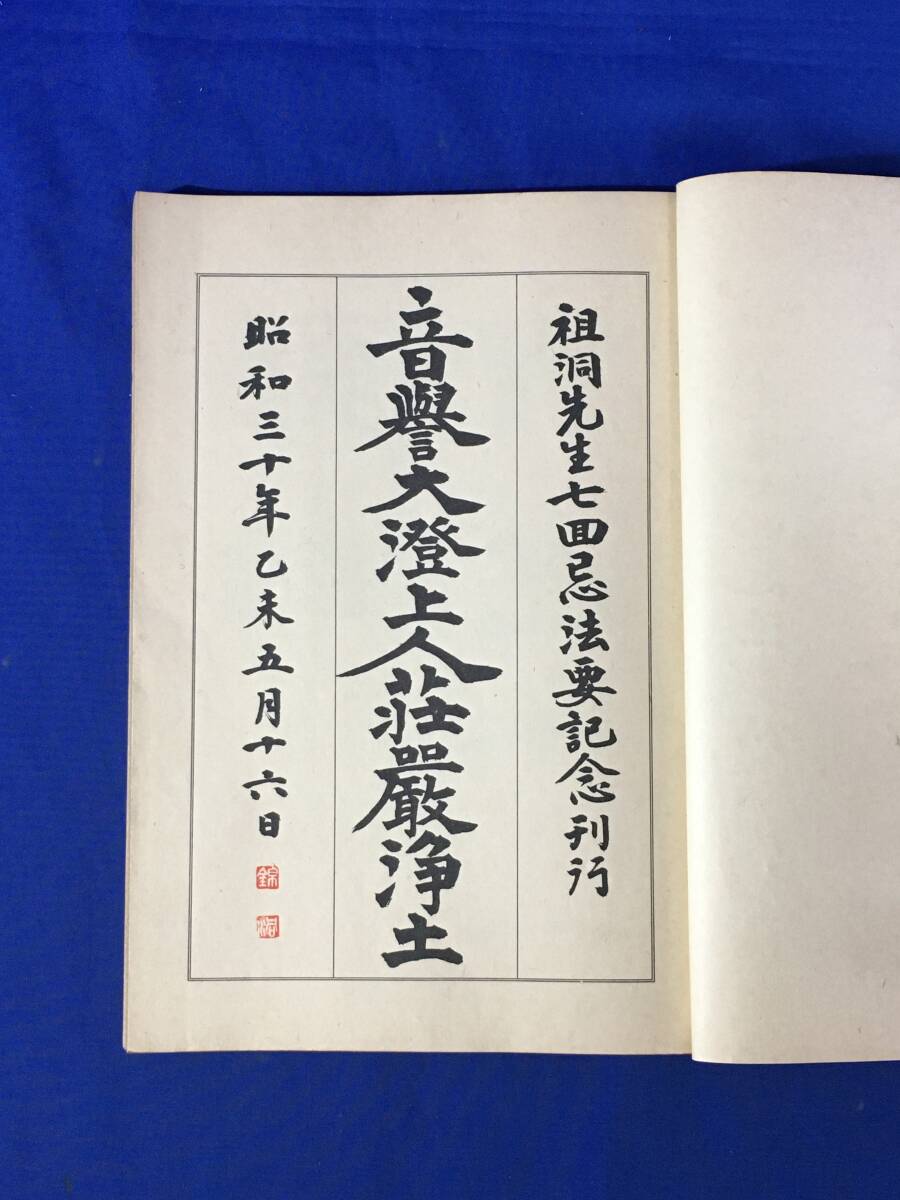 祖洞先生七回忌法要記念刊行
音譽大澄上人莊嚴浄土
昭和三十年乙未五月十六日
錦
洞